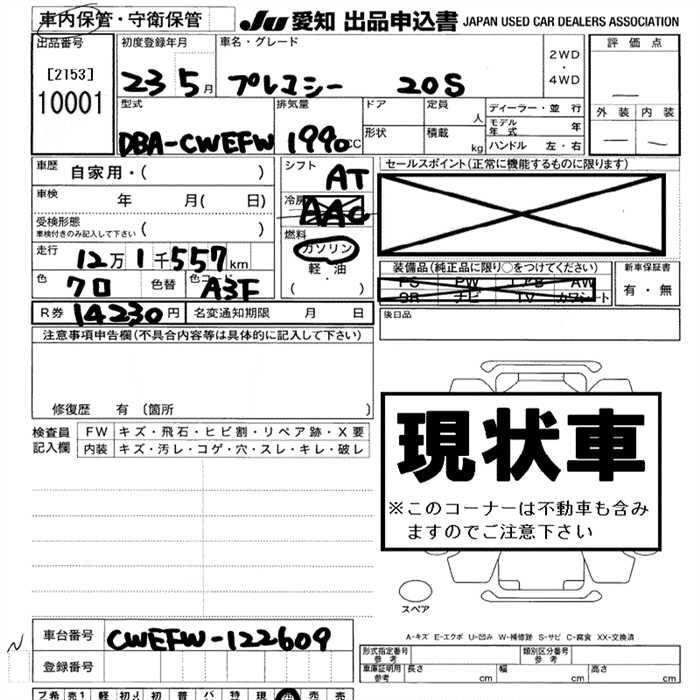 車内保管・守衛保管 JU 愛知 出品申込書 JAPAN USED CAR DEALERS ASSOCIATION
出品番号 初度登録年月 車名・グレード 評価点
[2153] 10001 23 5月 プレマシー 20S 2WD・4WD
型式 排気量 ドア 定員 人 ディーラー・並行 外装 内装
DBA-CWEFW 1990cc 形状 積載 kg モデル年式 年
ハンドル 左・右
車歴 自家用・( ) シフト AT セールスポイント(正常に機能するものに限ります)
車検 年 月( 日) 冷房 AAC
受検形態 車検付きのみ記入して下さい ( ) 燃料 ガソリン
走行 12万1千557km 軽・油 装備品(純正品に限り○をつけてください) 新車保証書
色 クロ 色替 色コード A3F ・( ) PS PW エアB AW 有・無
SR ナビ TV カワシート
R券 14230円 名変通知期限 月 日 後日品
注意事項申告欄(不具合内容等は具体的に記入して下さい)
修復歴 有 (箇所 )
現状車
※このコーナーは不動車も含み
ますのでご注意下さい
検査員記入欄 FW キズ・飛石・ヒビ割・リペア跡・X要
内装 キズ・汚レ・コゲ・穴・スレ・キレ・破レ
スペア
A-キズ E-エクボ U-凹み W-補修跡 S-サビ C-腐食 XX-交換済
車台番号 CWEFW-122609
登録番号
形式指定番号 参考 類別区分番号 参考
車庫証明用 参考 長さ cm 幅 cm 高さ cm